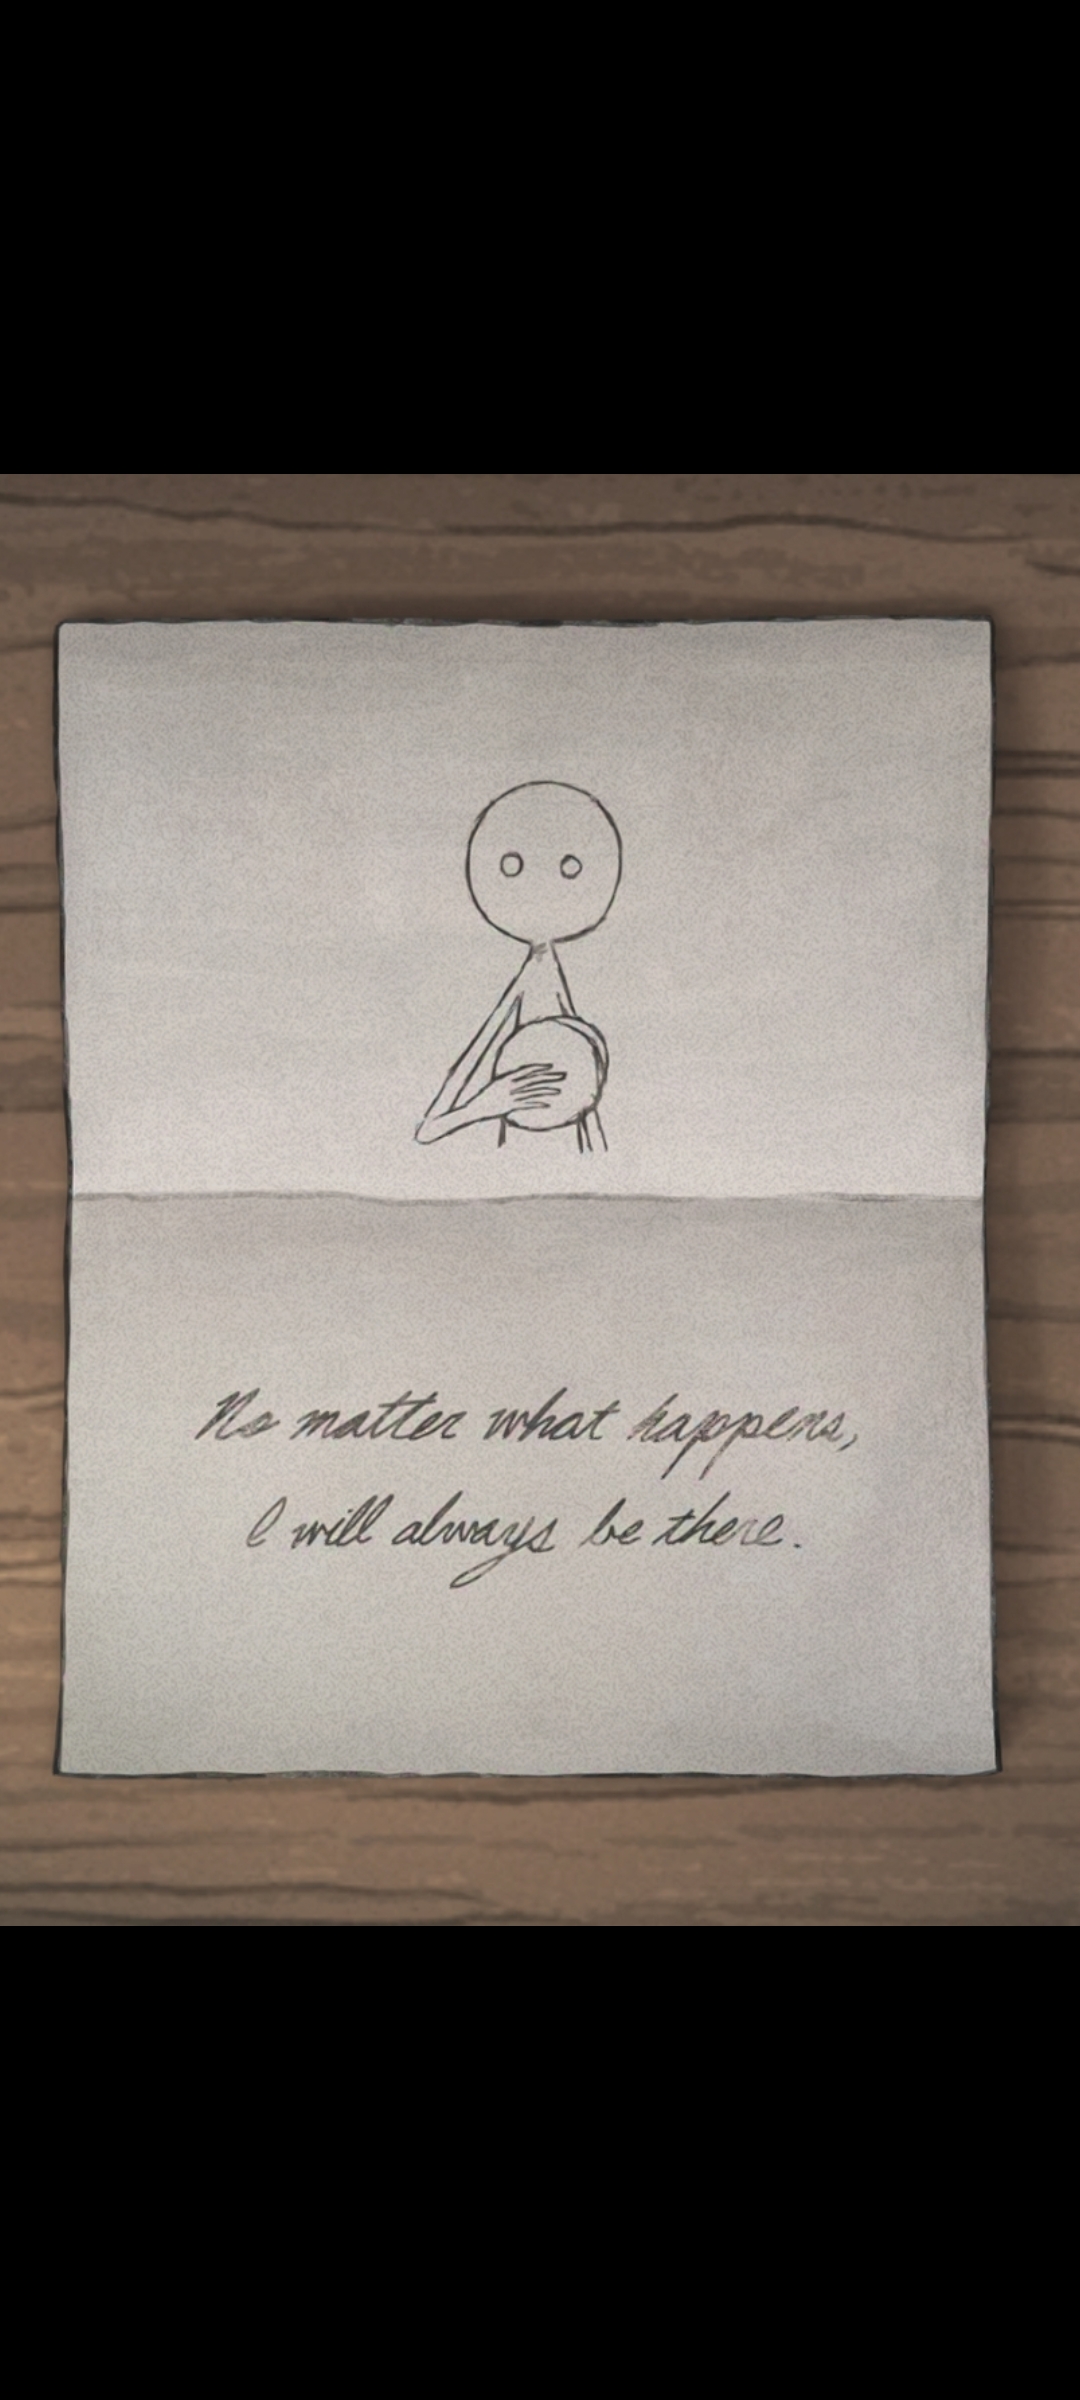 No matter what happens,
I will always be there.